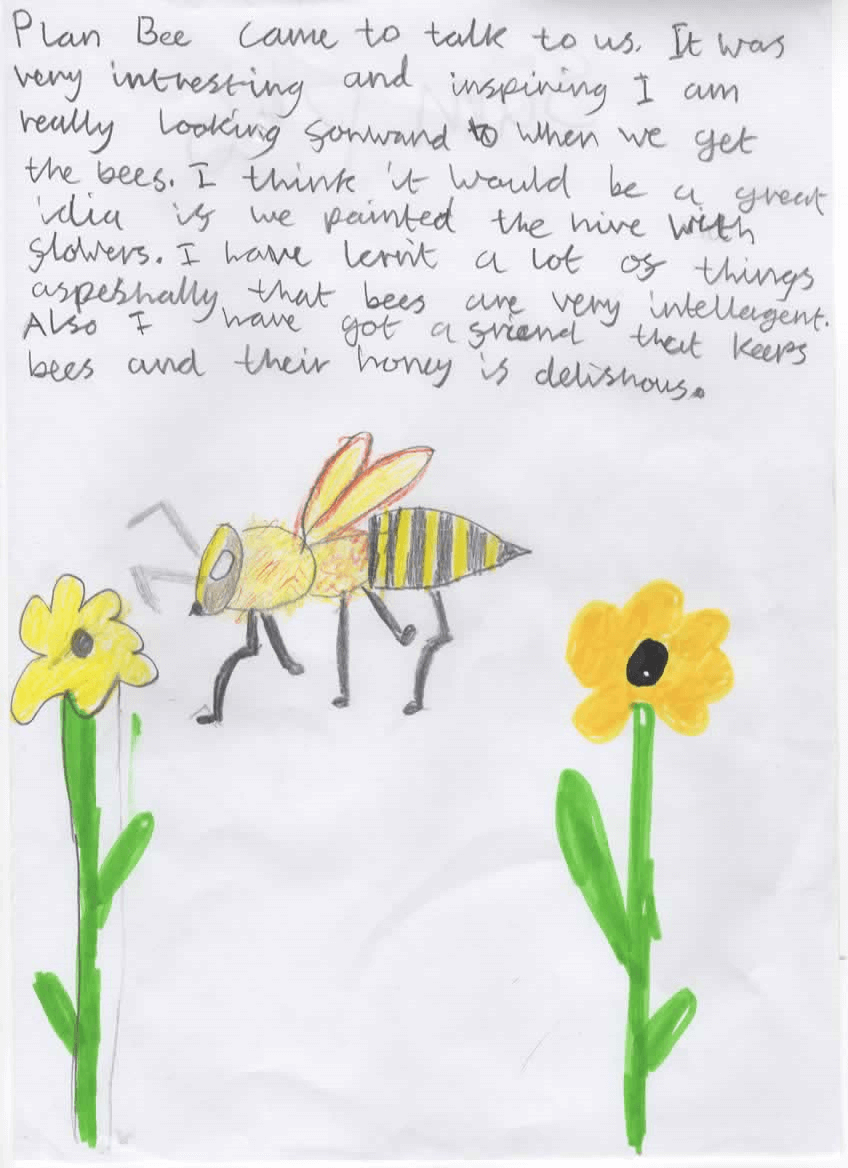 Plan Bee came to talk to us. It was
very intresting and inspiring I am
really looking forward to when we get
the bees. I think it would be a great
idia if we painted the hive with
flowers. I have lernt a lot of things
aspeshally that bees are very intellagent.
Also I have got a friend that keeps
bees and their honey is delishous.